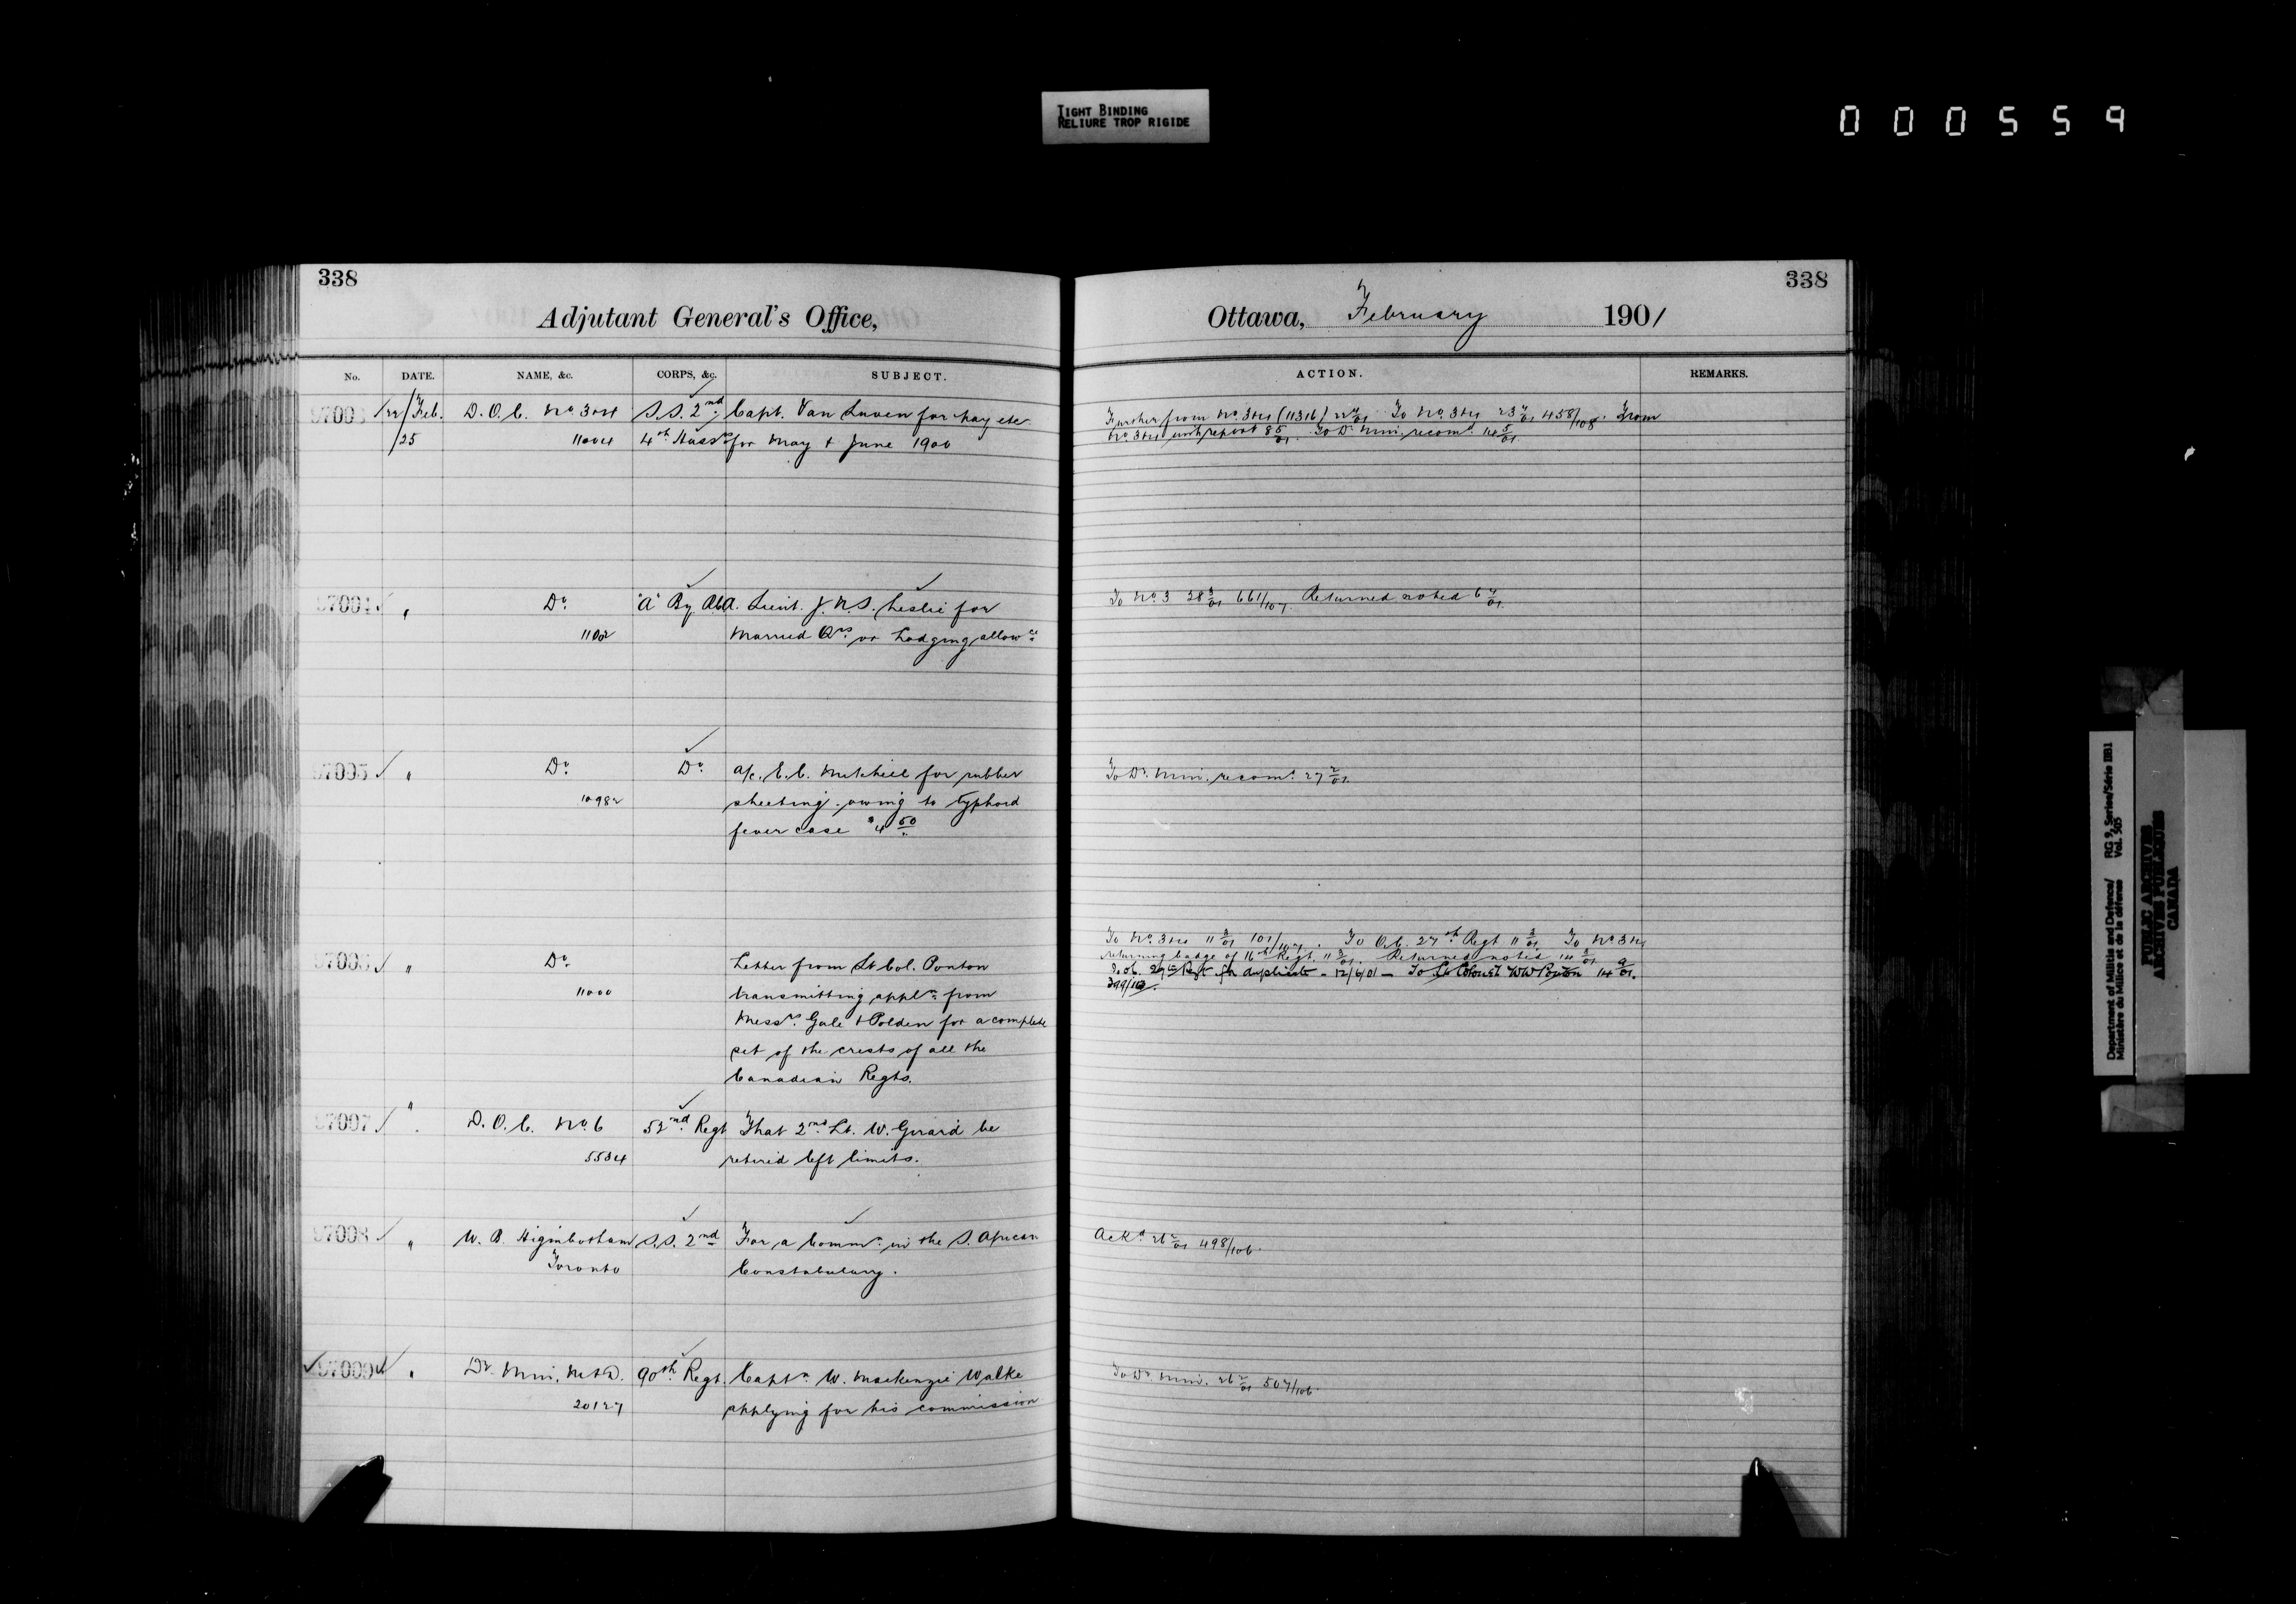 TIGHT BINDING
RELIURE TROP RIGIDE
000559
338
Adjutant General's Office,
No. DATE. NAME, &c. CORPS, &c. SUBJECT.
97003 22/Feb. D.O.C. No. 3&4 S.S. 2nd Capt. Van Luven for pay etc
/25 11004 4th Huss. for May & June 1900
97004 " Do. "A" By. Lieut. J.N.S. Leslie for
1102 Married Qrs. or Lodging allowce
97005 " Do. Do. a/c. E.C. Mitchell for rubber
10982 sheeting owing to typhoid
fever case $4 50
97006 " Do. Letter from Lt Col. Ponton
11000 transmitting appln. from
Messrs. Gale & Polden for a complete
set of the crests of all the
Canadian Regts.
97007 " D.O.C. No. 6 52nd Regt That 2nd Lt. W. Girard be
5534 retired left limits.
97008 " W. B. Higinbotham S.S. 2nd For a Commn. in the S. African
Toronto Constabulary.
97009 " Dr. Min. M&D. 90th Regt. Captn. W. Mackenzie Walke
20127 applying for his commission
338
Ottawa, February 1901
ACTION. REMARKS.
Further from No. 3&4 (11316) To No. 3&4 458/108. From
No. 3&4 with report 8 5/01. To Dr. Min. recomd. 14 5/01.
To No. 3 28 3/01 661/107. Returned noted 6 4/01.
To Dr. Min. recomd. 27 2/01.
To No. 3&4 11 3/01 101/107. To O.C. 27th Regt 11 3/01. To No 3&4
returning badge of 16th Regt. 11 3/01. Returned noted 14 3/01
Regt for duplicate - 12/6/01 - To Lt Colonel W W Ponton 14 9/01.
Ackd 26 2/01 498/106.
To Dr. Min. 26 2/01 507/106.
Department of Militia and Defence/ RG 9, Series/Série IIB1
Ministère du Milice et de la défense Vol. 505
PUBLIC ARCHIVES
ARCHIVES PUBLIQUES
CANADA